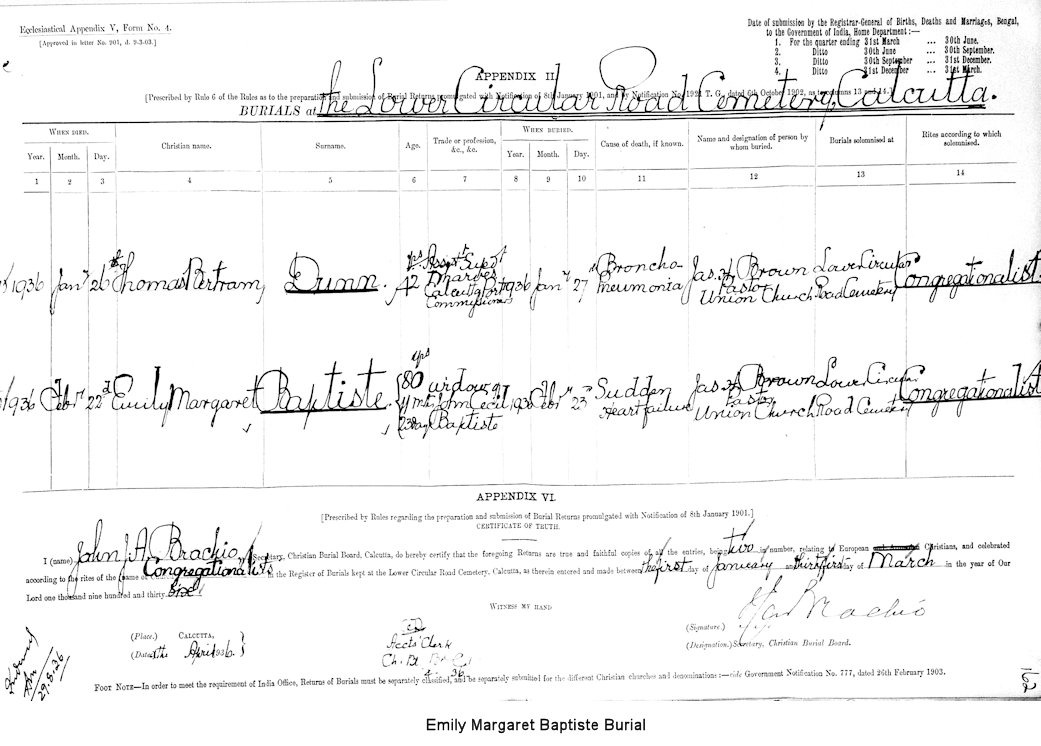 Ecclesiastical Appendix V, Form No. 4.
[Approved in letter No. 901, d. 9-3-03.]
Date of submission by the Registrar-General of Births, Deaths and Marriages, Bengal,
to the Government of India, Home Department:—
1. For the quarter ending 31st March ... 30th June.
2. Ditto 30th June ... 30th September.
3. Ditto 30th September ... 31st December.
4. Ditto 31st December ... 31st March.
APPENDIX II.
[Prescribed by Rule 6 of the Rules as to the preparation and submission of Burial Returns promulgated with Notification of 8th January 1901, and by Notification No. 192 T. G., dated 6th October 1902, as to columns 13 and 14.]
BURIALS at the Lower Circular Road Cemetery, Calcutta.
WHEN DIED. Christian name. Surname. Age. Trade or profession, &c., &c. WHEN BURIED. Cause of death, if known. Name and designation of person by whom buried. Burials solemnised at Rites according to which solemnised.
Year. Month. Day. Year. Month. Day.
1 2 3 4 5 6 7 8 9 10 11 12 13 14
1936 Jany 26th Thomas Bertram, Dunn. 42 yrs Asst Supdt Wharves Calcutta Port Commissioners 1936 Jany 27th Broncho-Pneumonia Jas. H. Brown Pastor Union Church Lower Circular Road Cemetery Congregationalist.
1936 Febr 22d Emily Margaret Baptiste. 80 yrs 11 mts 23 day widow of John Cecil Baptiste 1936 Febr 23 Sudden Heart failure Jas. H. Brown Pastor Union Church Lower Circular Road Cemetery Congregationalist
APPENDIX VI.
[Prescribed by Rules regarding the preparation and submission of Burial Returns promulgated with Notification of 8th January 1901.]
CERTIFICATE OF TRUTH.
I (name) John J. A. Brachio, Secretary, Christian Burial Board, Calcutta, do hereby certify that the foregoing Returns are true and faithful copies of all the entries, being two in number, relating to European Christians, and celebrated
according to the rites of the Congregationalists in the Register of Burials kept at the Lower Circular Road Cemetery, Calcutta, as therein entered and made between the first day of January and thirty first day of March in the year of Our
Lord one thousand nine hundred and thirty six
WITNESS MY HAND
(Place.) CALCUTTA,
(Dated the April 1936.
Acct's Clerk
(Signature.) Brachio
(Designation.) Secretary, Christian Burial Board.
29.8.36
FOOT NOTE—In order to meet the requirement of India Office, Returns of Burials must be separately classified, and be separately submitted for the different Christian churches and denominations:—vide Government Notification No. 777, dated 26th February 1903.
Emily Margaret Baptiste Burial